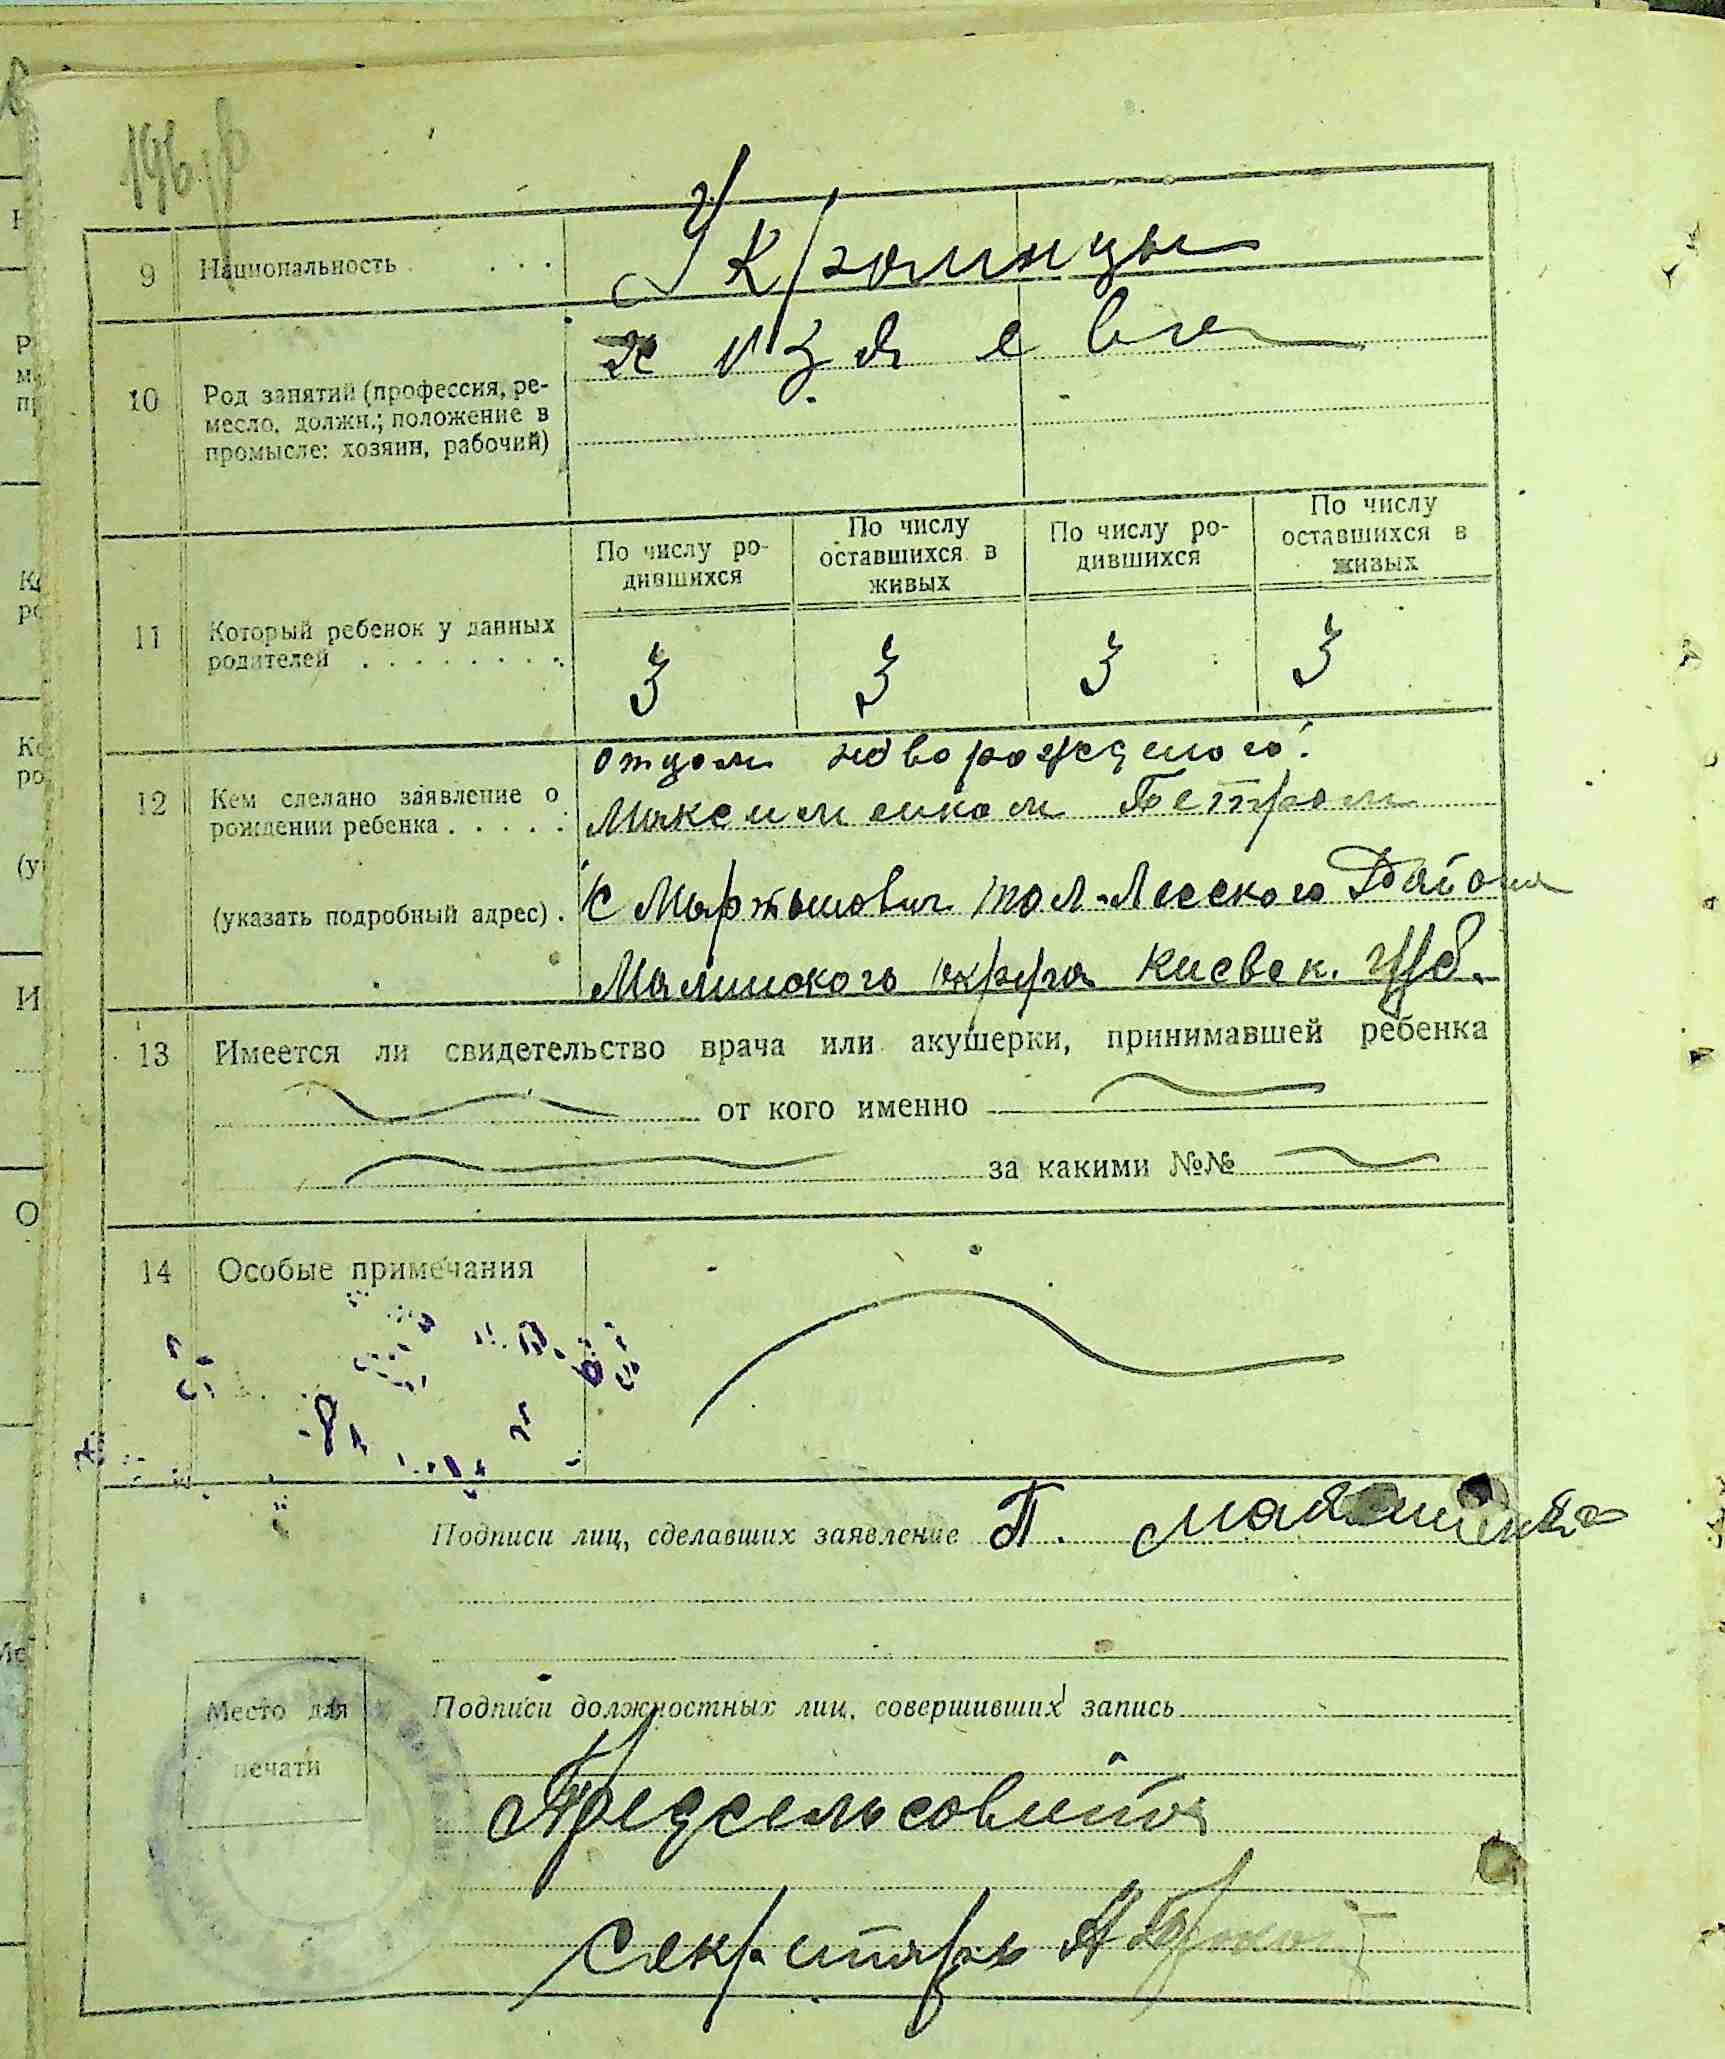 196
9 Национальность . . . .
Украинцы
10 Род занятий (профессия, ре-
месло, должн.; положение в
промысле: хозяин, рабочий)
хозяева
11 Который ребенок у данных
родителей . . . . . . . .
По числу ро-
дившихся
По числу
оставшихся в
живых
По числу ро-
дившихся
По числу
оставшихся в
живых
3 3 3 3
12 Кем сделано заявление о
рождении ребенка . . . . .
(указать подробный адрес) .
отцом новорожденого:
Максименком Петром
с Мартынович Пол-Лесского Района
Малинского округа Киевск. Губ.
13 Имеется ли свидетельство врача или акушерки, принимавшей ребенка
от кого именно
за какими №№
14 Особые примечания
Подписи лиц, сделавших заявление П. Максименко
Место для
печати
Подписи должностных лиц, совершивших запись
Предсельсовета
Секретарь А